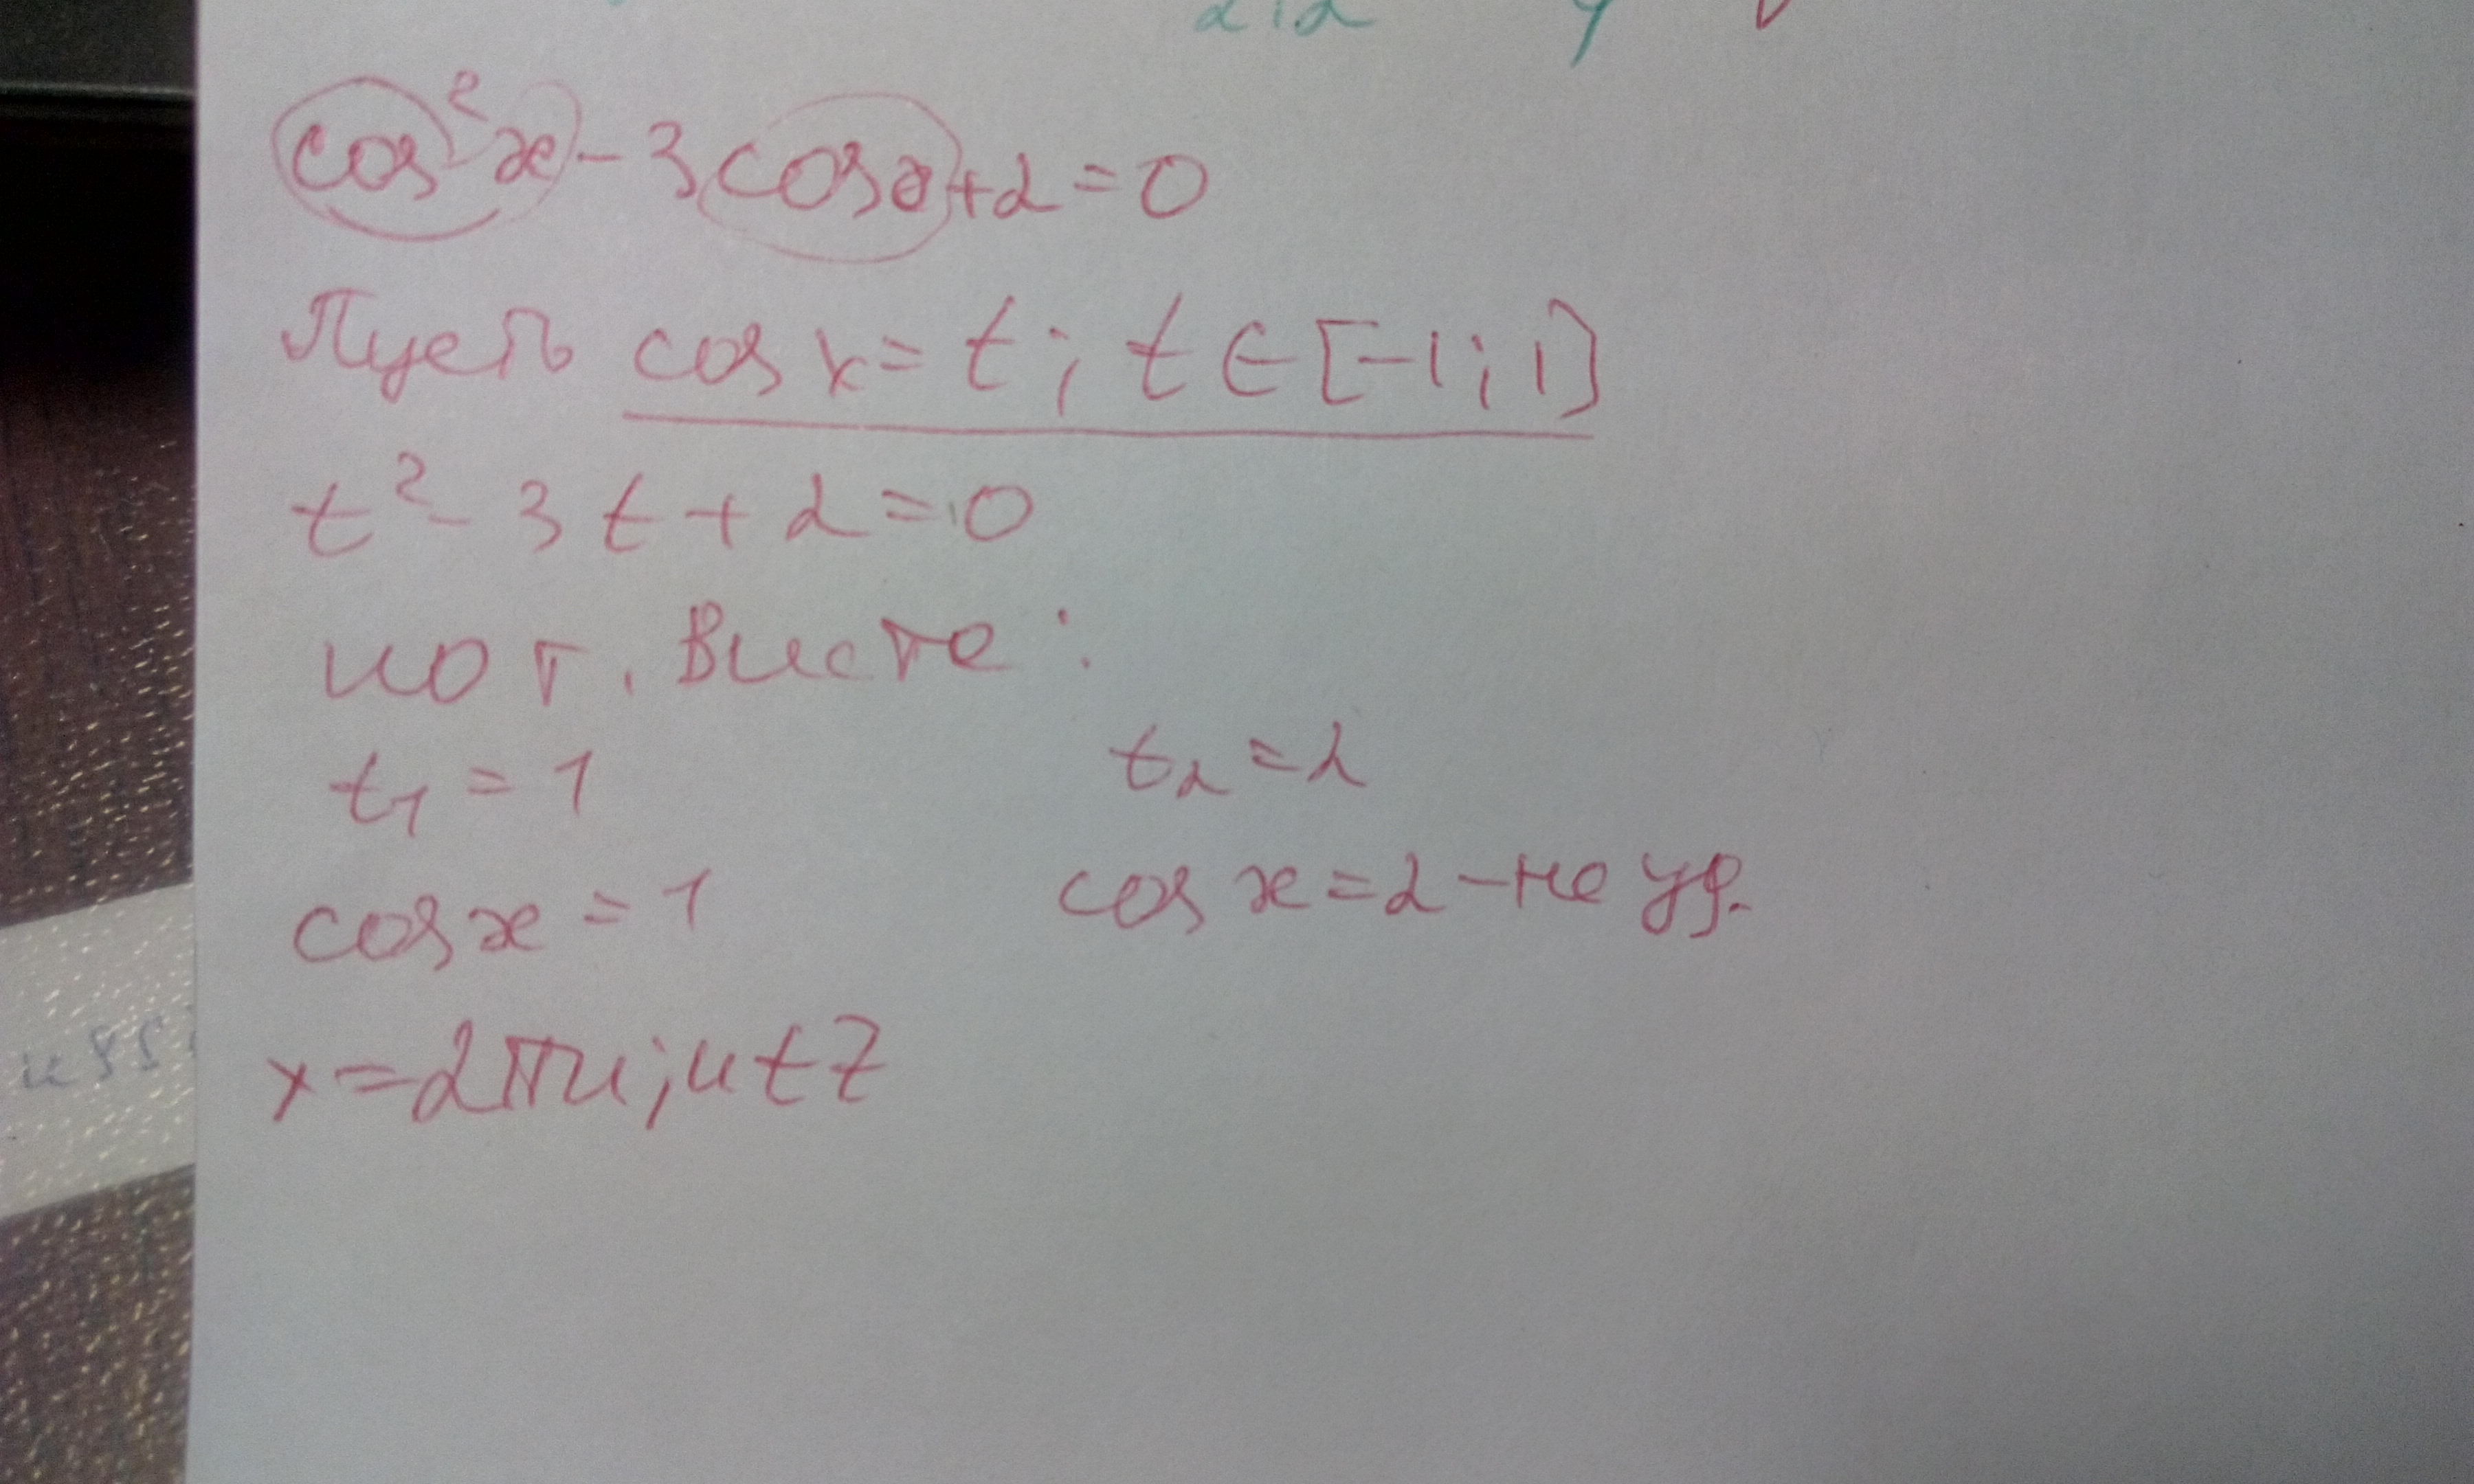 cos²x - 3cosx + 2 = 0
Пусть cos x = t ; t ∈ [-1; 1]
t² - 3t + 2 = 0
по т. Виета :
t₁ = 1 t₂ = 2
cos x = 1 cos x = 2 - не уд.
x = 2πn; n ∈ Z